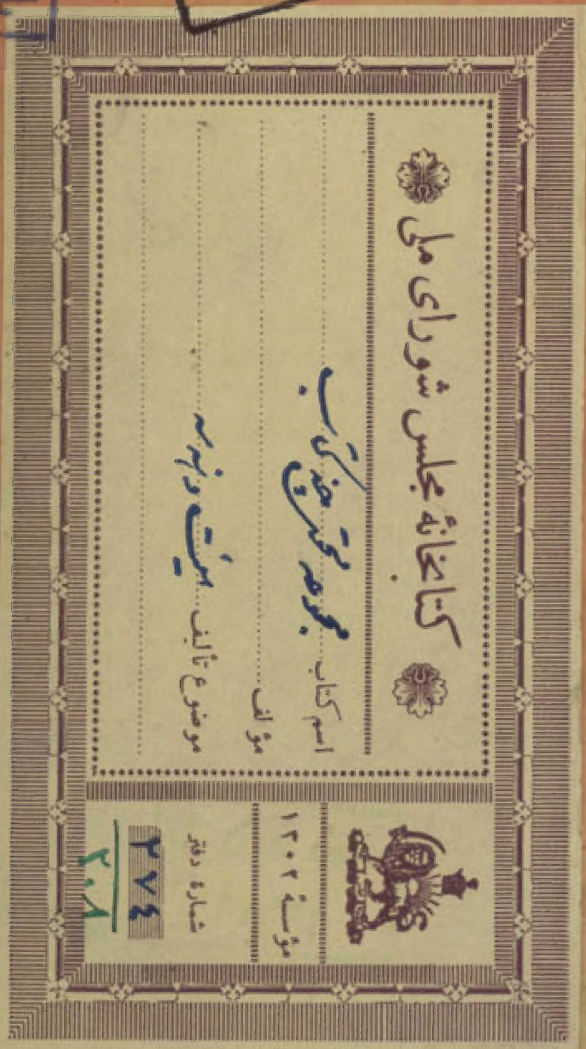 کتابخانهٔ مجلس شورای ملی
اسم کتاب مجموعه محتوی چند کتاب
مؤلف
موضوع تألیف هیئت و هندسه
مؤسسهٔ ۱۳۰۲
شمارهٔ دفتر
۲۷۴
۲۰۸